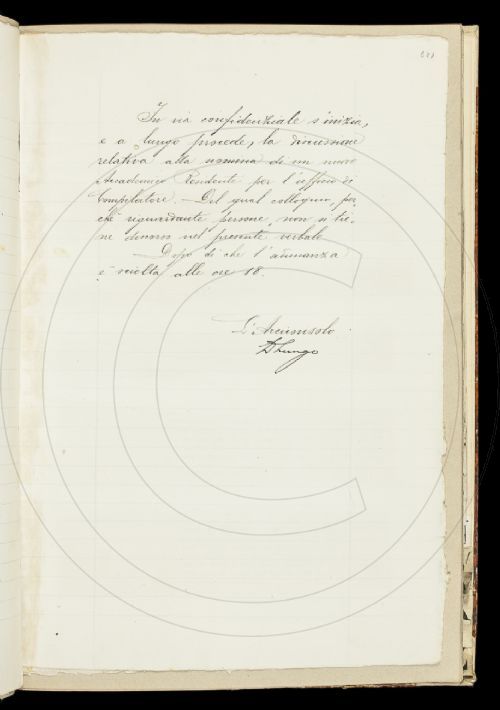 In via confidenziale s'inizia,
e a lungo procede, la discussione
relativa alla nomina di un nuovo
Accademico Residente per l'ufficio di
Compilatore. — Del qual colloquio, per-
chè riguardante persone, non si tie-
ne discorso nel presente verbale.
— Dopo di che l'adunanza
è sciolta alle ore 18.
L'Arciconsolo